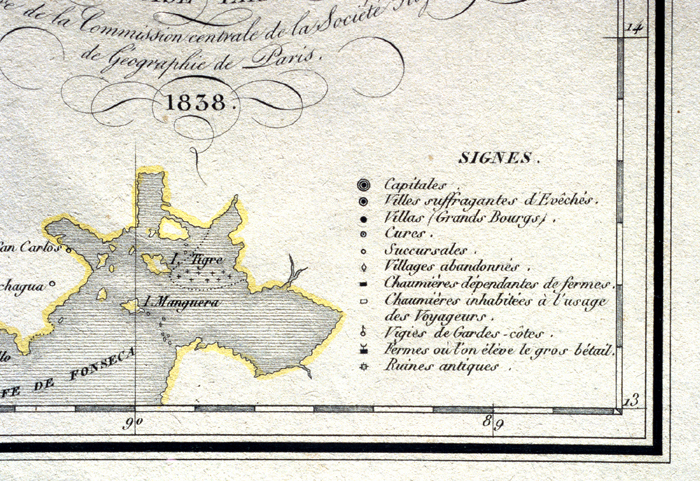 de la Commission centrale de la Société
de Géographie de Paris.
1838.
14
SIGNES.
Capitales.
Villes suffragantes d'Evêchés.
Villas (Grands Bourgs).
Cures.
Succursales.
Villages abandonnés.
Chaumières dépendantes de fermes.
Chaumières inhabitées à l'usage
des Voyageurs.
Vigies de Gardes-côtes.
Fermes où l'on élève le gros bétail.
Ruines antiques.
an Carlos
I. Tigre
chagua
I. Manguera
FE DE FONSECA
13
90
89